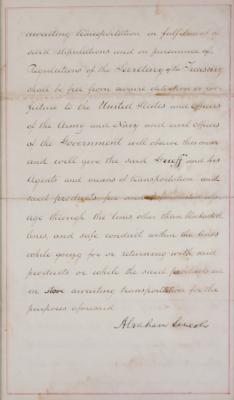 awaiting transportation in fulfilment of
said stipulations and in pursuance of
Regulations of the Secretary of the Treasury
shall be free from seizure detention or for-
feiture to the United States and officers
of the Army and Navy and civil officers
of the Government will observe this order
and will give the said and his
Agents and means of transportation and
said products free and
age through the lines, other than blockaded
lines, and safe conduct within the lines
while going for or returning with said
products or while the said products are
in store awaiting transportation for the
purposes aforesaid
Abraham Lincoln